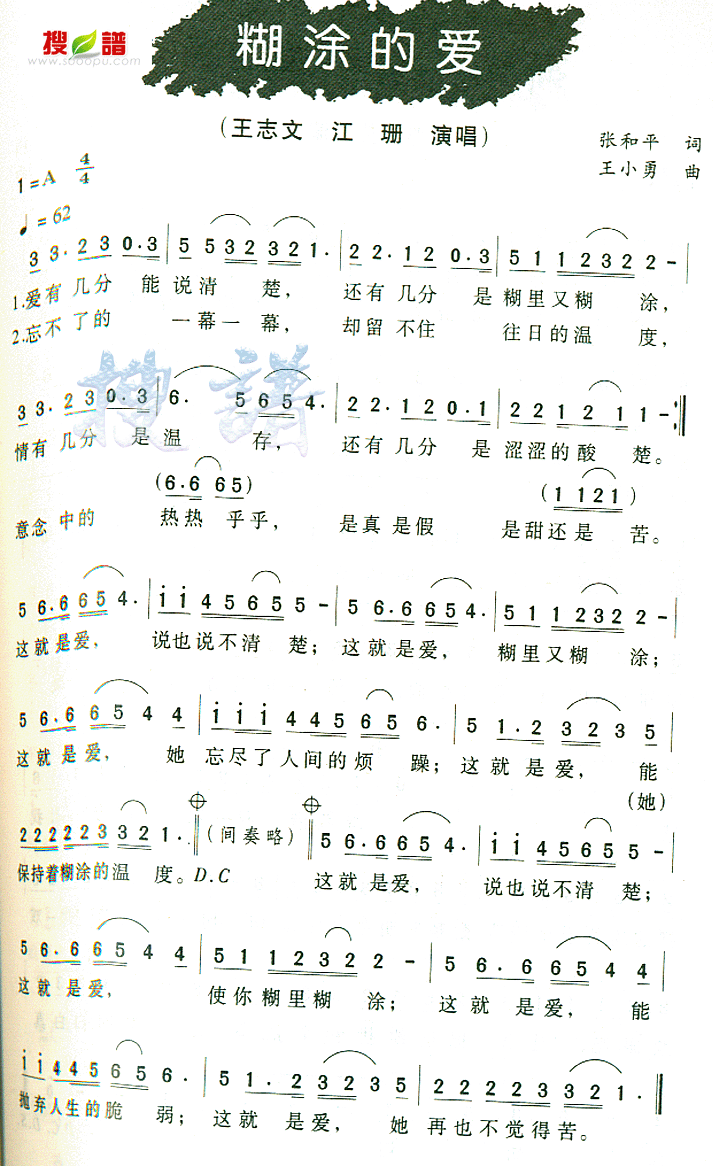 搜谱
www.sooopu.com
糊涂的爱
(王志文 江 珊 演唱)
张和平 词
王小勇 曲
1=A 4/4
♩=62
3 3·2 3 0·3 | 5 5 3 2 3 2 1· | 2 2·1 2 0·3 | 5 1 1 2 3 2 2 - |
1.爱有 几分 能 说清 楚, 还有 几分 是 糊里又糊 涂,
2.忘不 了的 一幕一 幕, 却留 不住 往日的温 度,
搜 譜
3 3·2 3 0·3 | 6· 5 6 5 4· | 2 2·1 2 0·1 | 2 2 1 2 1 1 - :||
情有 几分 是 温 存, 还有 几分 是 涩涩的酸 楚。
(6·6 6 5) (1 1 2 1)
意念 中的 热热 乎乎, 是真 是假 是甜还是 苦。
5 6·6 6 5 4· | i i 4 5 6 5 5 - | 5 6·6 6 5 4· | 5 1 1 2 3 2 2 - |
这就 是爱, 说也说不清 楚; 这就 是爱, 糊里又糊 涂;
5 6·6 6 5 4 4 | i i i 4 4 5 6 5 6· | 5 1·2 3 2 3 5 |
这就 是爱, 她 忘尽了人间的烦 躁; 这就 是爱, 能
(她)
2 2 2 2 2 3 3 2 1· || (间奏略) || 5 6·6 6 5 4· | i i 4 5 6 5 5 - |
保持着糊涂的温 度。D.C 这就 是爱, 说也说不清 楚;
5 6·6 6 5 4 4 | 5 1 1 2 3 2 2 - | 5 6·6 6 5 4 4 |
这就 是爱, 使你糊里糊 涂; 这就 是爱, 能
i i 4 4 5 6 5 6· | 5 1·2 3 2 3 5 | 2 2 2 2 3 3 2 1· ||
抛弃人生的脆 弱; 这就 是爱, 她 再也不觉得苦。